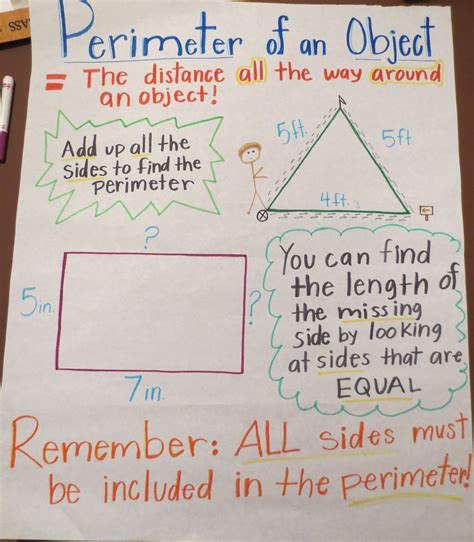 Perimeter of an Object
= The distance all the way around
an object!
Add up all the
sides to find the
perimeter
5ft.
5ft
4ft.
?
5in.
?
7in.
You can find
the length of
the missing
side by looking
at sides that are
EQUAL
Remember: ALL sides must
be included in the perimeter!